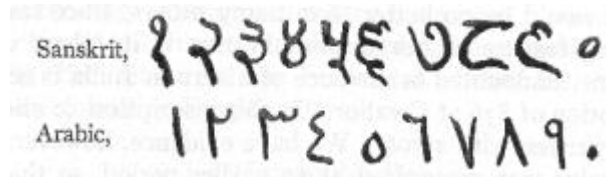 Sanskrit, १२३४५६७८९०
Arabic, ١٢٣٤٥٦٧٨٩٠